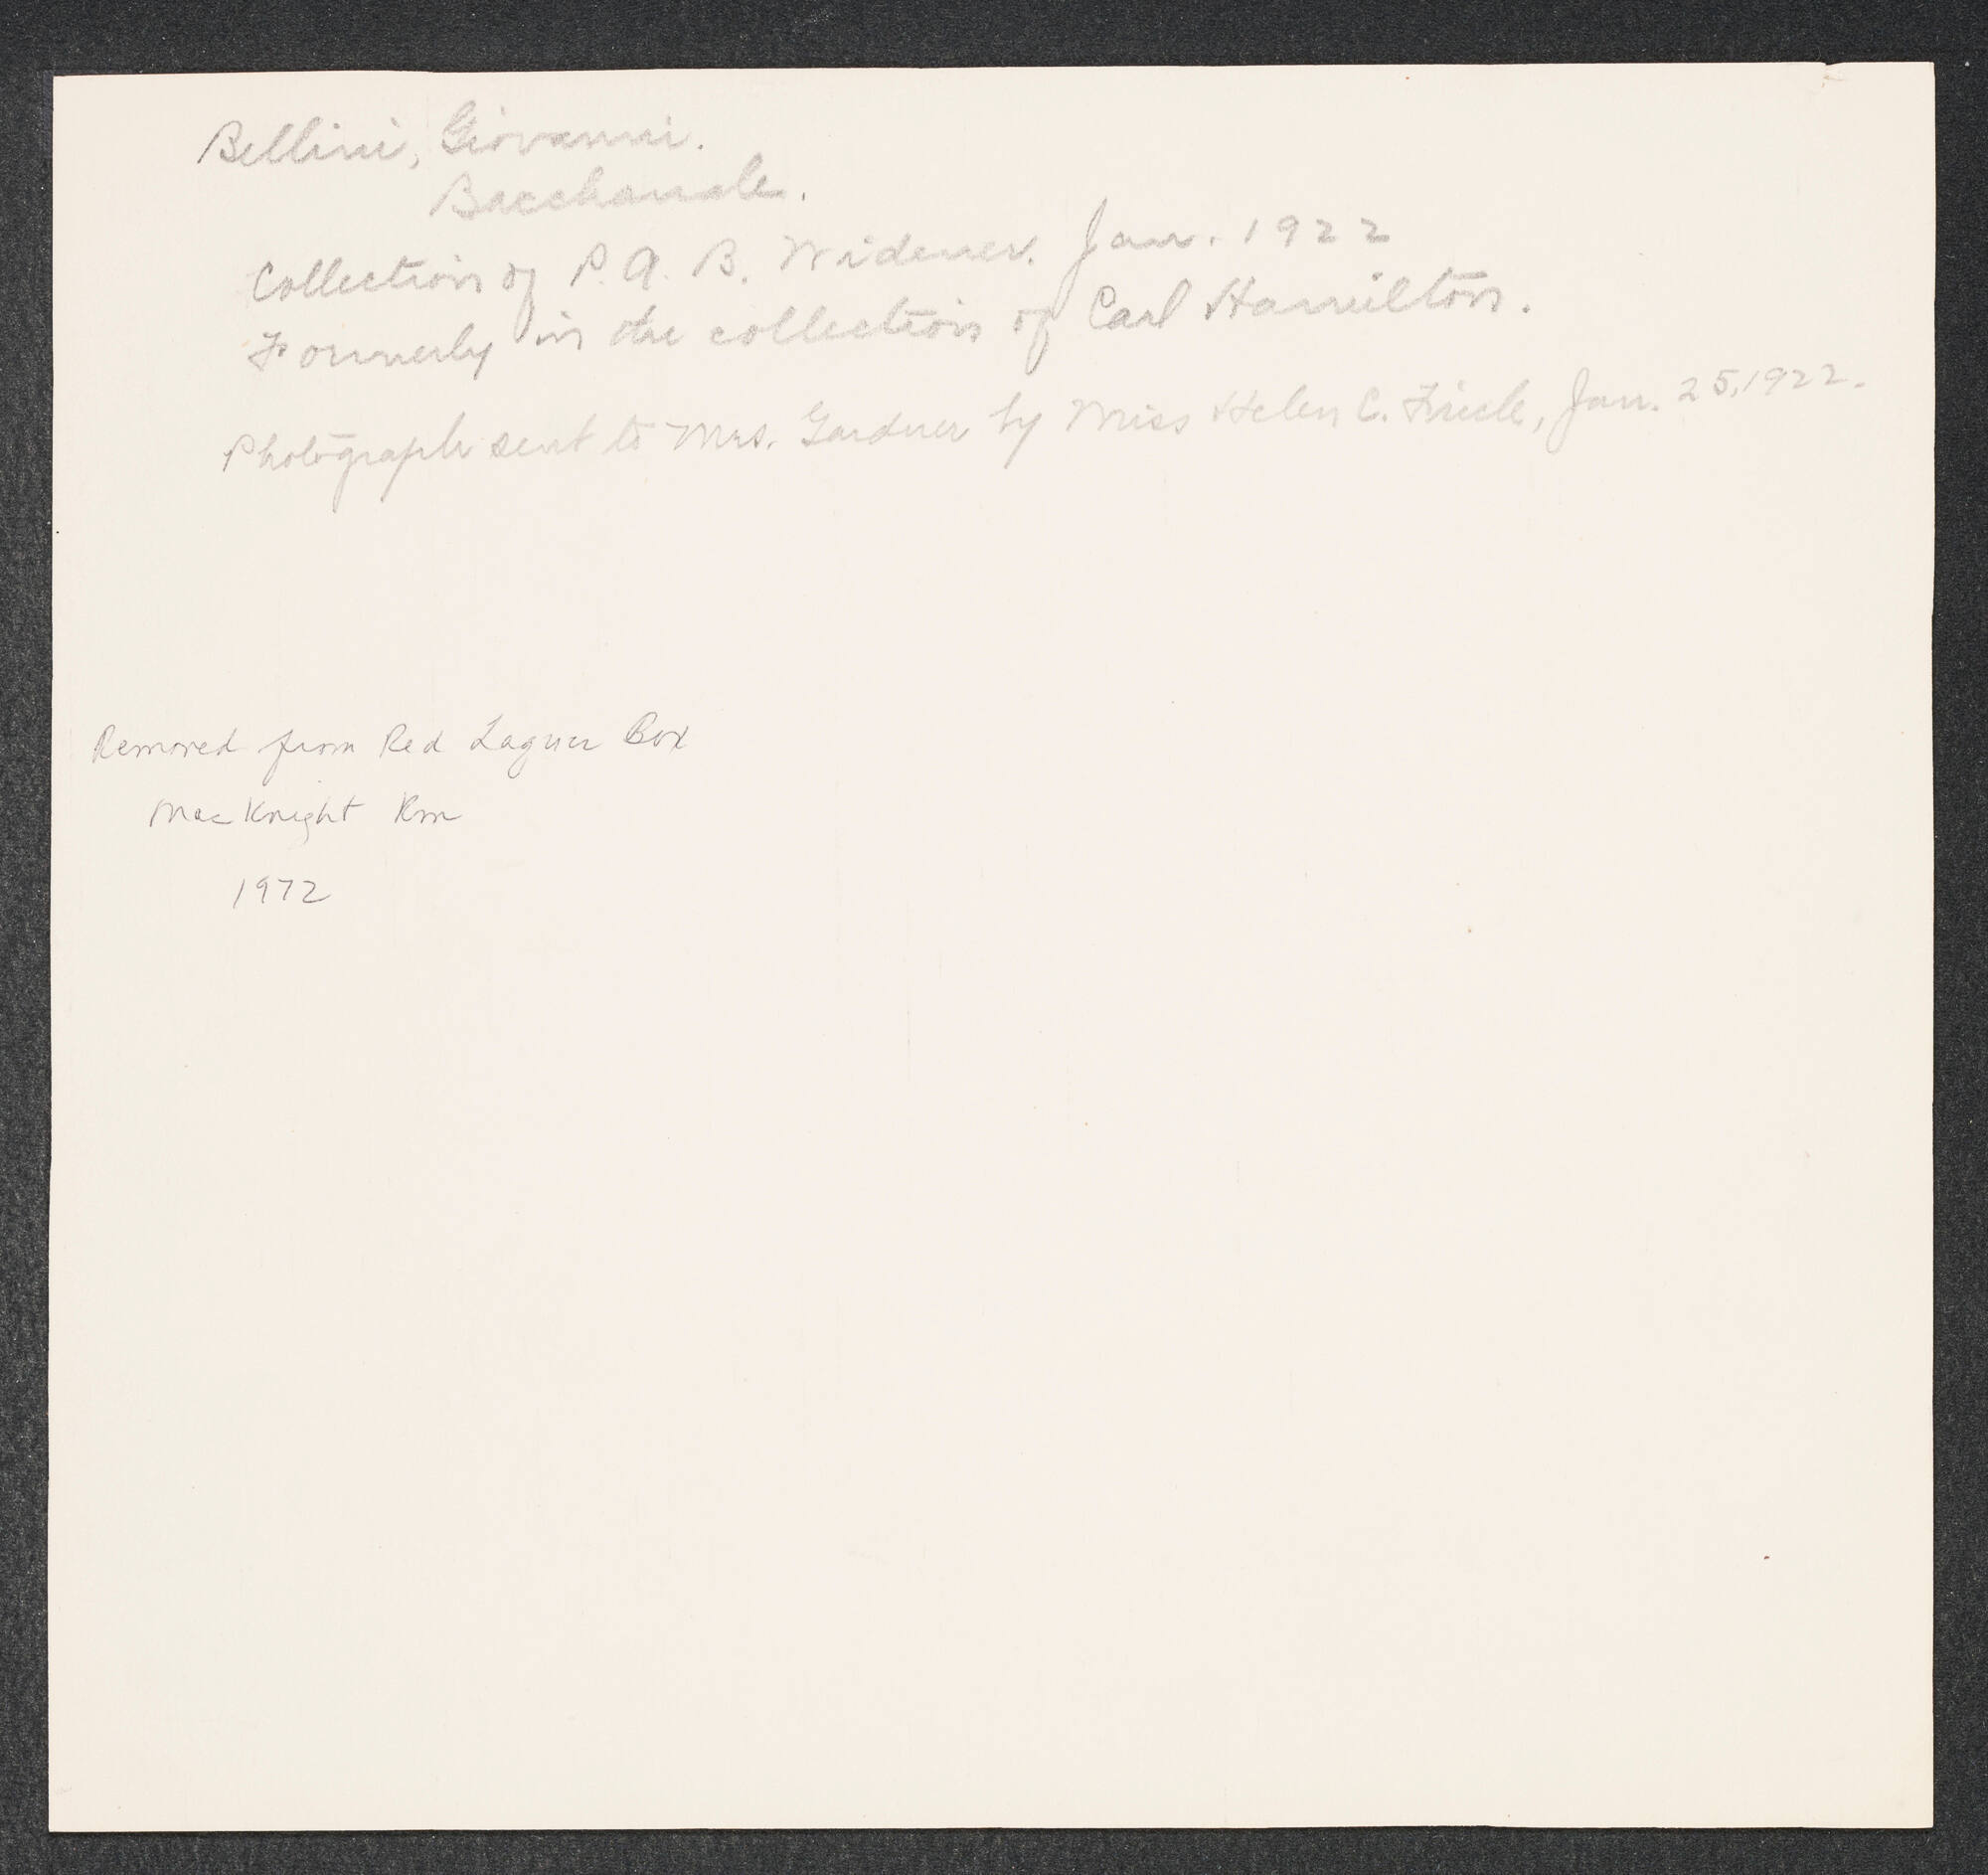 Bellini, Giovanni.
Bacchanale.
Collection of P. A. B. Widener. Jan. 1922
Formerly in the collection of Carl Hamilton.
Photograph sent to Mrs. Gardner by Miss Helen C. Frick, Jan. 25, 1922.
Removed from Red Laquer Box
MacKnight Rm
1972